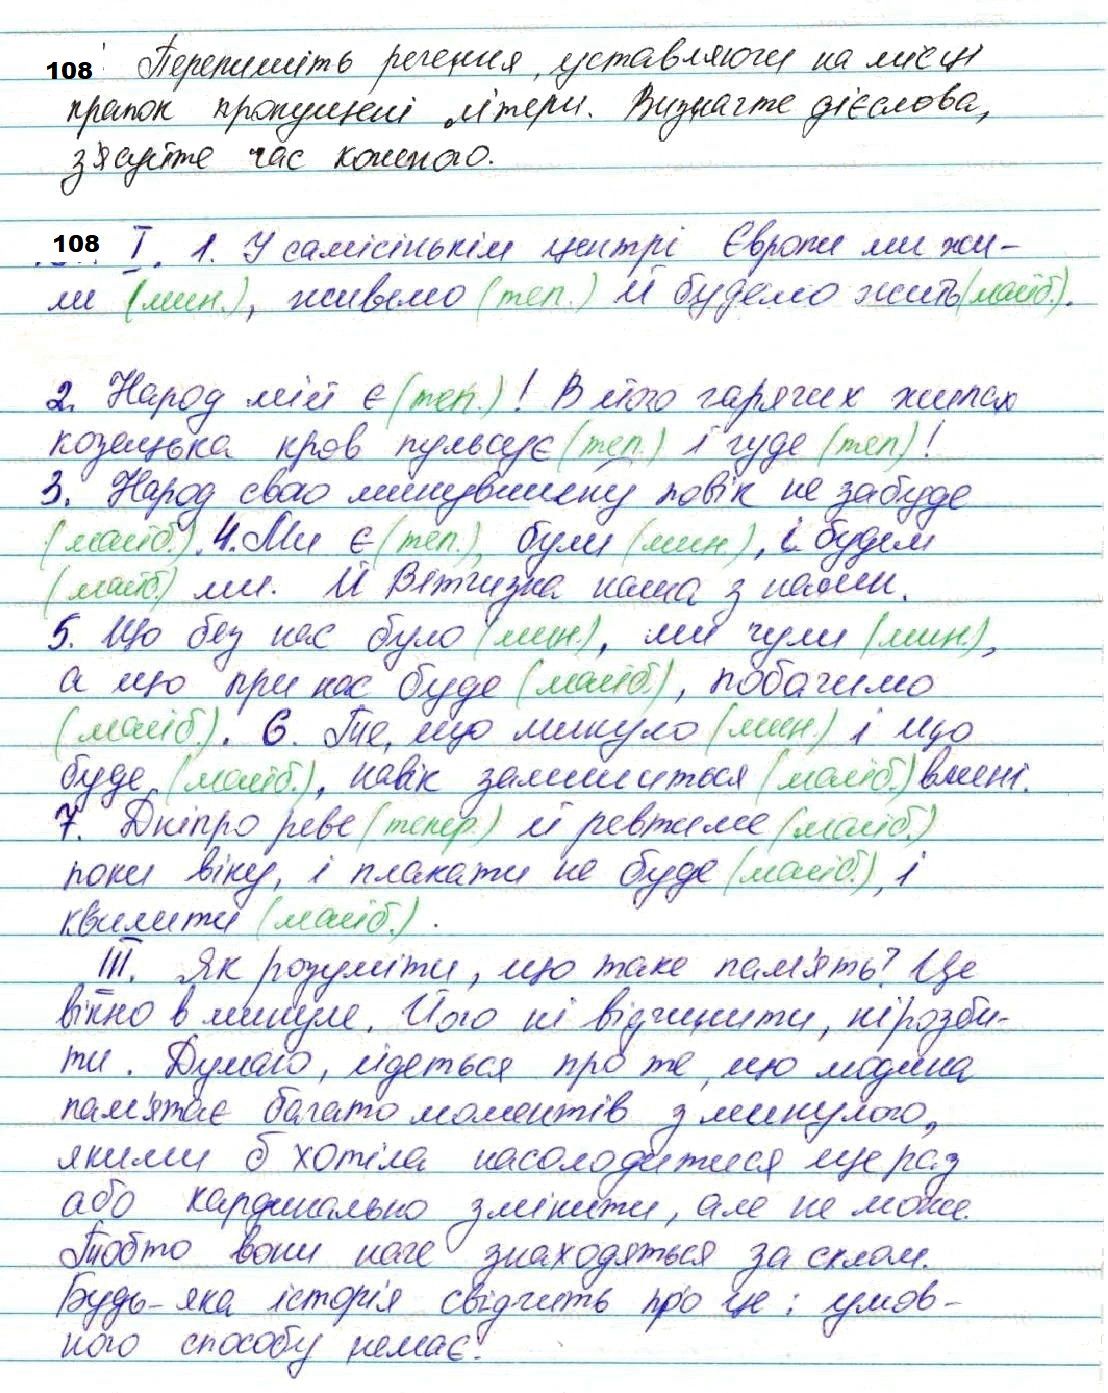 108 Перепишіть речення, уставляючи на місці
крапок пропущені літери. Визначте дієслова,
з'ясуйте час кожного.
108 I. 1. У самісінькім центрі Європи ми жи-
ли (мин.), живемо (теп.) й будемо жить (майб.).
2. Народ мій є (теп.)! В його гарячих жилах
козацька кров пульсує (теп.) і гуде (теп)!
3. Народ свою минувшину повік не забуде
(майб.). 4. Ми є (теп.), були (мин.), і будем
(майб) ми. Й Вітчизна наша з нами.
5. Що без нас було (мин.), ми чули (мин.),
а що при нас буде (майб.), побачимо
(майб.). 6. Те, що минуло (мин.) і що
буде (майб.), навік залишиться (майб.) в мені.
7. Дніпро реве (тепер.) й ревтиме (майб.)
поки віку, і плакати не буде (майб.), і
квилити (майб.).
III. Як розуміти, що таке пам'ять? Це
вікно в минуле. Його ні відчинити, ні розби-
ти. Думаю, йдеться про те, що людина
пам'ятає багато моментів з минулого,
якими б хотіла насолодитися ще раз
або кардинально змінити, але не може.
Тобто вони наче знаходяться за склом.
Будь-яка історія свідчить про це: умов-
ного способу немає.